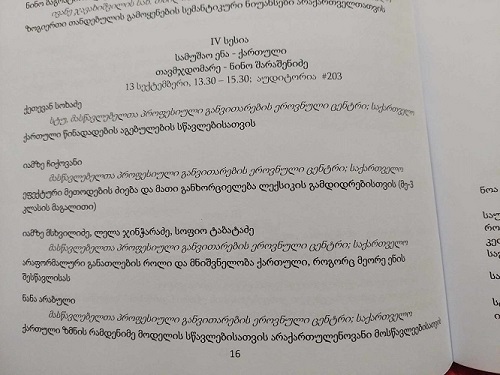 ზოგიერთი თანდებულის გამოყენების სემანტიკური ნიუანსები არაქართველთათვის
IV სესია
სამუშაო ენა - ქართული
თავმჯდომარე - ნინო შარაშენიძე
13 სექტემბერი, 13.30 – 15.30; აუდიტორია #203
ქეთევან სოხაძე
სტუ, მასწავლებელთა პროფესიული განვითარების ეროვნული ცენტრი; საქართველო
ქართული წინადადების აგებულების სწავლებისათვის
იამზე ჩიქოვანი
მასწავლებელთა პროფესიული განვითარების ეროვნული ცენტრი; საქართველო
ეფექტური მეთოდების ძიება და მათი განხორციელება ლექსიკის გამდიდრებისთვის (მე-3
კლასის მაგალითი)
იამზე მსხვილიძე, ლელა ჯინჭარაძე, სოფიო ტაბატაძე
მასწავლებელთა პროფესიული განვითარების ეროვნული ცენტრი; საქართველო
არაფორმალური განათლების როლი და მნიშვნელობა ქართული, როგორც მეორე ენის
შესწავლისას
ნანა არაბული
მასწავლებელთა პროფესიული განვითარების ეროვნული ცენტრი; საქართველო
ქართული ზმნის რამდენიმე მოდელის სწავლებისათვის არაქართულენოვანი მოსწავლეებისათვის
16
ნოა